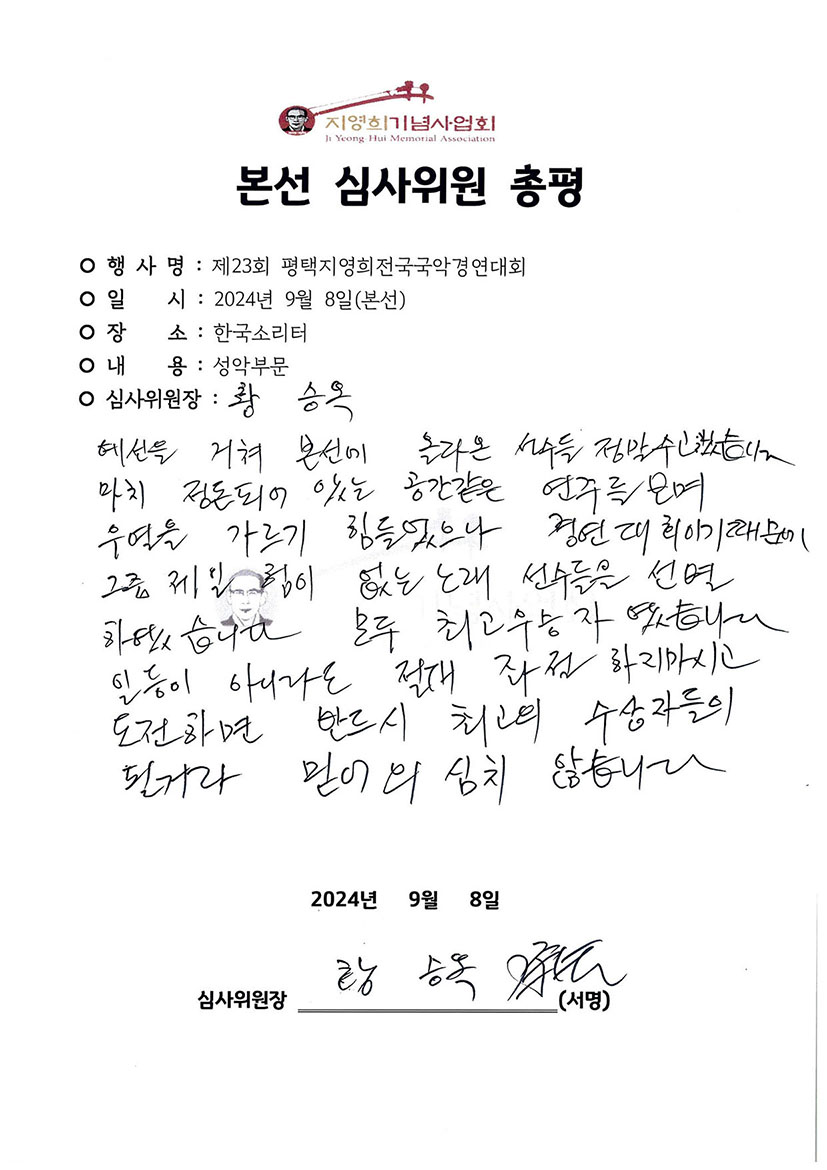 지영희기념사업회
Ji Yeong-Hui Memorial Association
본선 심사위원 총평
행 사 명 : 제23회 평택지영희전국국악경연대회
일 시 : 2024년 9월 8일(본선)
장 소 : 한국소리터
내 용 : 성악부문
심사위원장 : 황 승옥
예선을 거쳐 본선에 올라온 선수들 정말 수고했습니다
마치 정돈되어 있는 공간같은 연주를 보며
우열을 가르기 힘들었으나 경연대회이기때문에
그중 제일 험이 없는 노래 선수들을 선별
하였습니다 모두 최고우승자 였습니다
일등이 아니라도 절대 좌절 하지마시고
도전하면 반드시 최고의 수상자들의
될거라 믿어 의심치 않습니다
2024년 9월 8일
심사위원장 황 승옥 (서명)